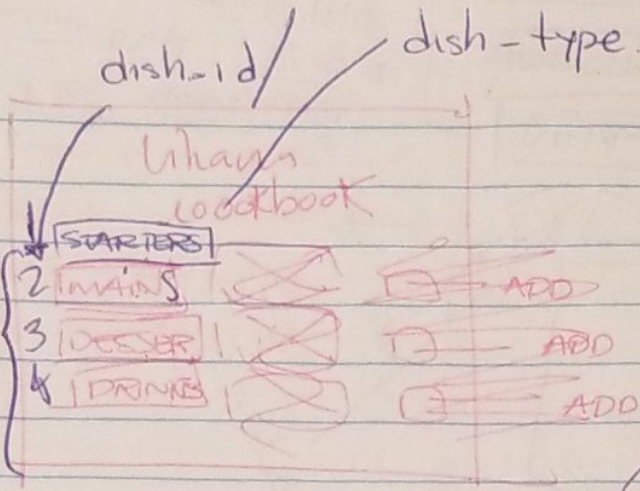 dish_id/
dish-type
coookbook
STARTERS
2 MAINS ADD
3 DESSER ADD
4 DRINKS ADD